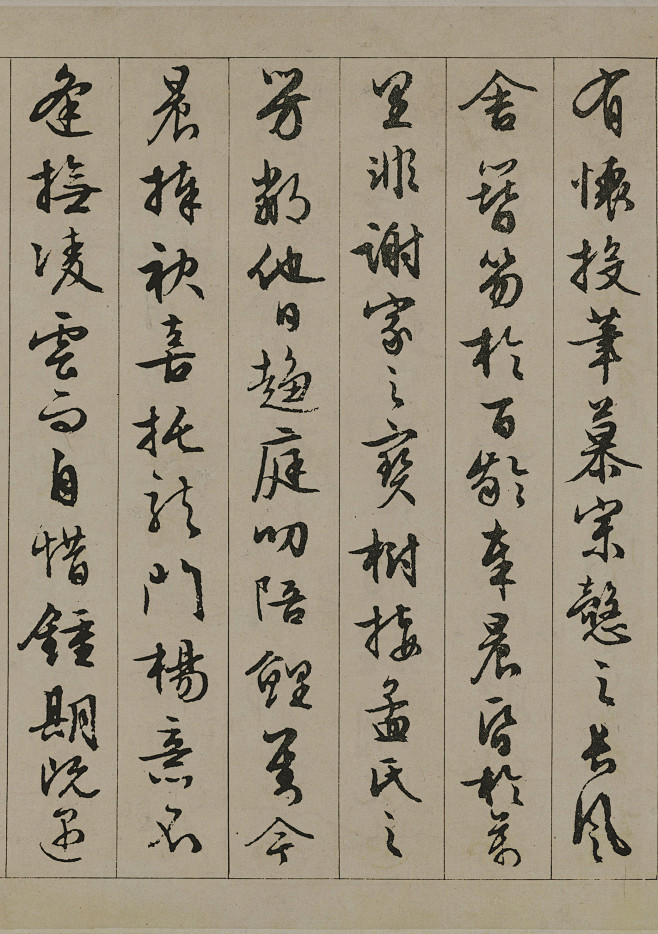 有懷投筆慕宗慤之長風
舍簪笏於百齡奉晨昏於萬
里非謝家之寶樹接孟氏之
芳鄰他日趨庭叨陪鯉對今
晨捧袂喜托龍門楊意不
逢撫凌雲而自惜鍾期既遇